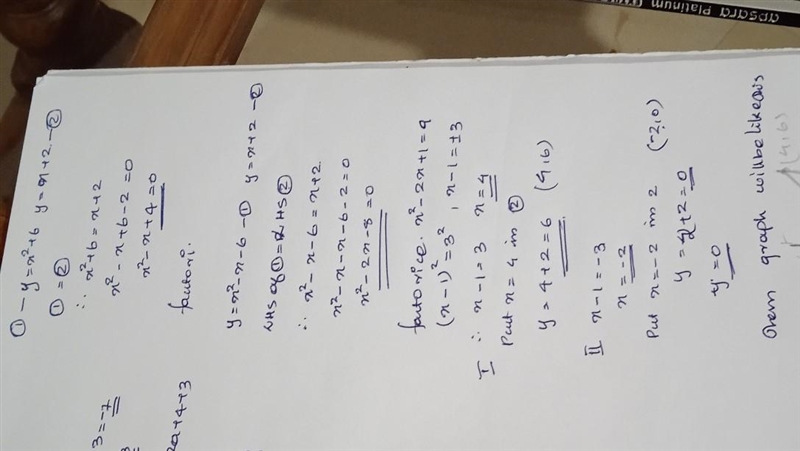 apsara Platinum
3 = -7
2a+4+3
① - y = x²+6 y = x+2 - ②
① = ②
∴ x²+6 = x+2
x² - x + 6 - 2 = 0
x² - x + 4 = 0
factori.
y = x² - x - 6 - ① y = x+2 - ②
RHS of ① = RHS ②
∴ x² - x - 6 = x+2
x² - x - x - 6 - 2 = 0
x² - 2x - 8 = 0
factorise. x² - 2x + 1 = 9
(x-1)² = 3² , x-1 = ±3
I ∴ x-1 = 3 x = 4
Put x = 4 in ②
y = 4+2 = 6 (4,6)
II x-1 = -3
x = -2
Put x = -2 in 2 (-2,0)
y = -2+2 = 0
y = 0
graph will be like this
(4,6)